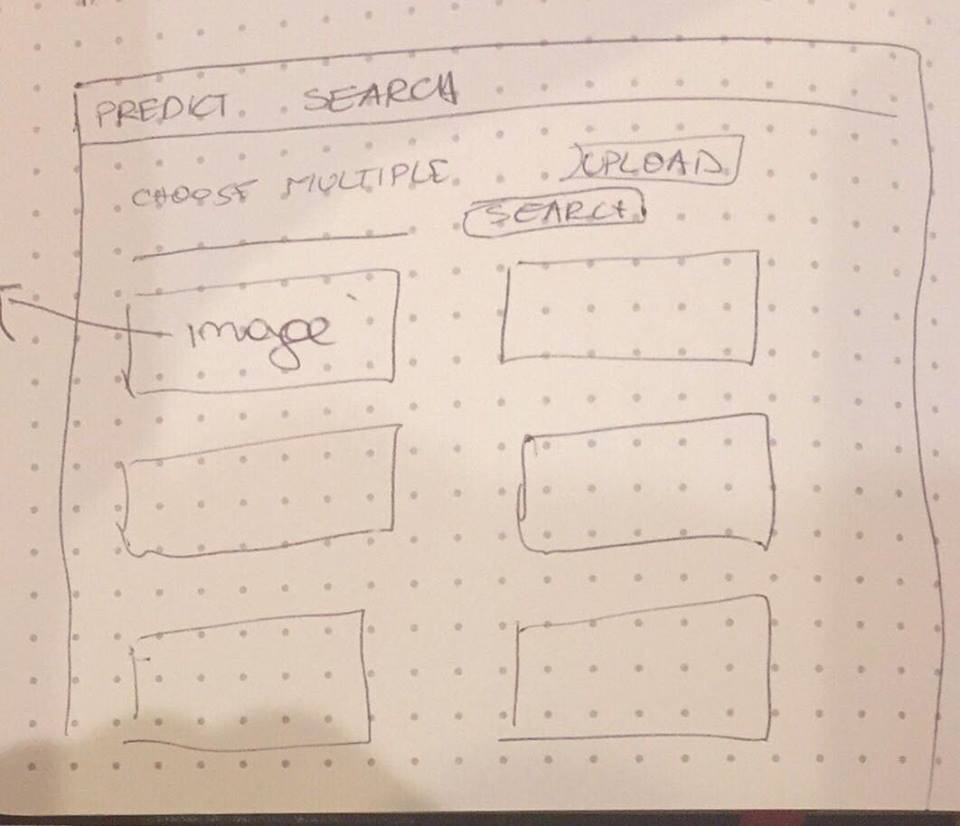 PREDICT SEARCH
CHOOSE MULTIPLE UPLOAD
SEARCH
image